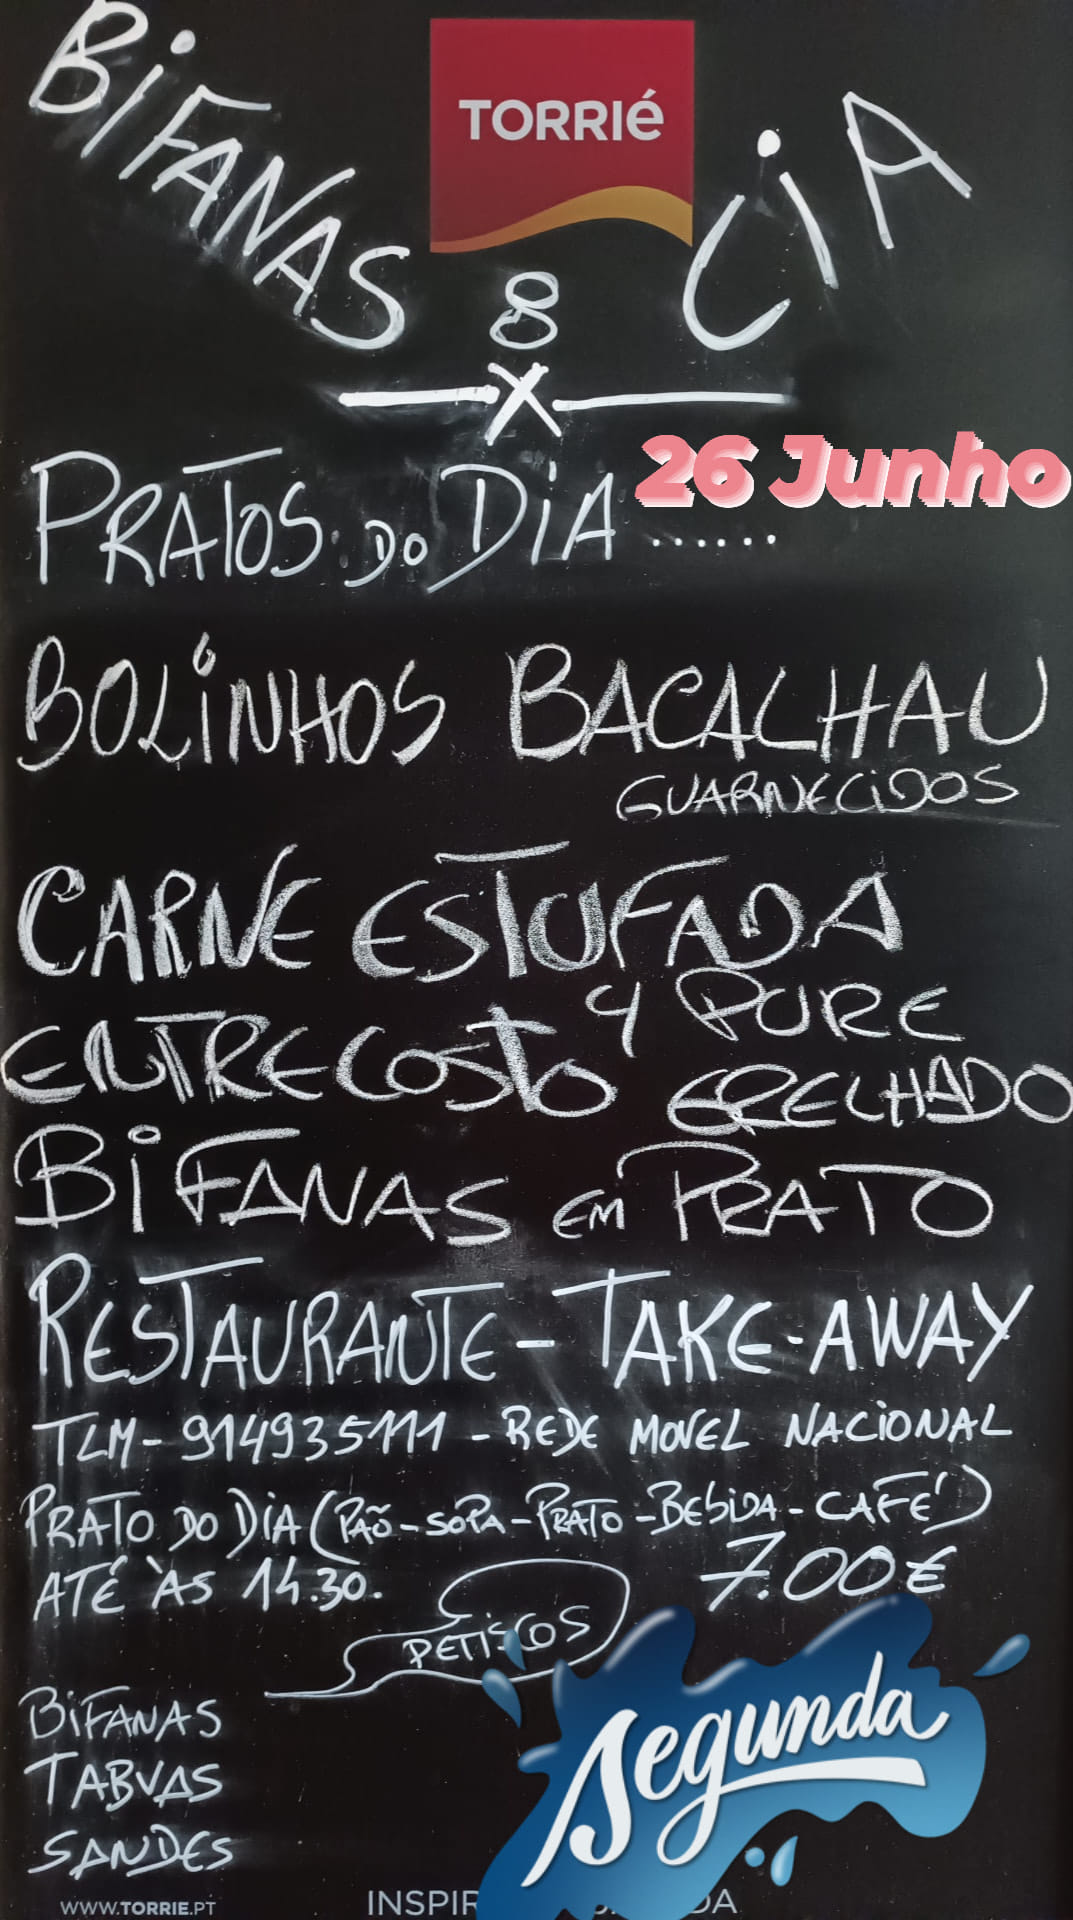 TORRIÉ
BIFANAS & CIA
X
26 Junho
PRATOS DO DIA ......
BOLINHOS BACALHAU
GUARNECIDOS
CARNE ESTUFADA
PURE
ENTRECOSTO GRELHADO
BIFANAS EM PRATO
RESTAURANTE - TAKE-AWAY
TLM - 914935111 - REDE MOVEL NACIONAL
PRATO DO DIA (PÃO - SOPA - PRATO - BEBIDA - CAFÉ)
ATÉ ÀS 14.30. 7.00€
PETISCOS
BIFANAS
TABUAS
SANDES
Segunda
WWW.TORRIE.PT